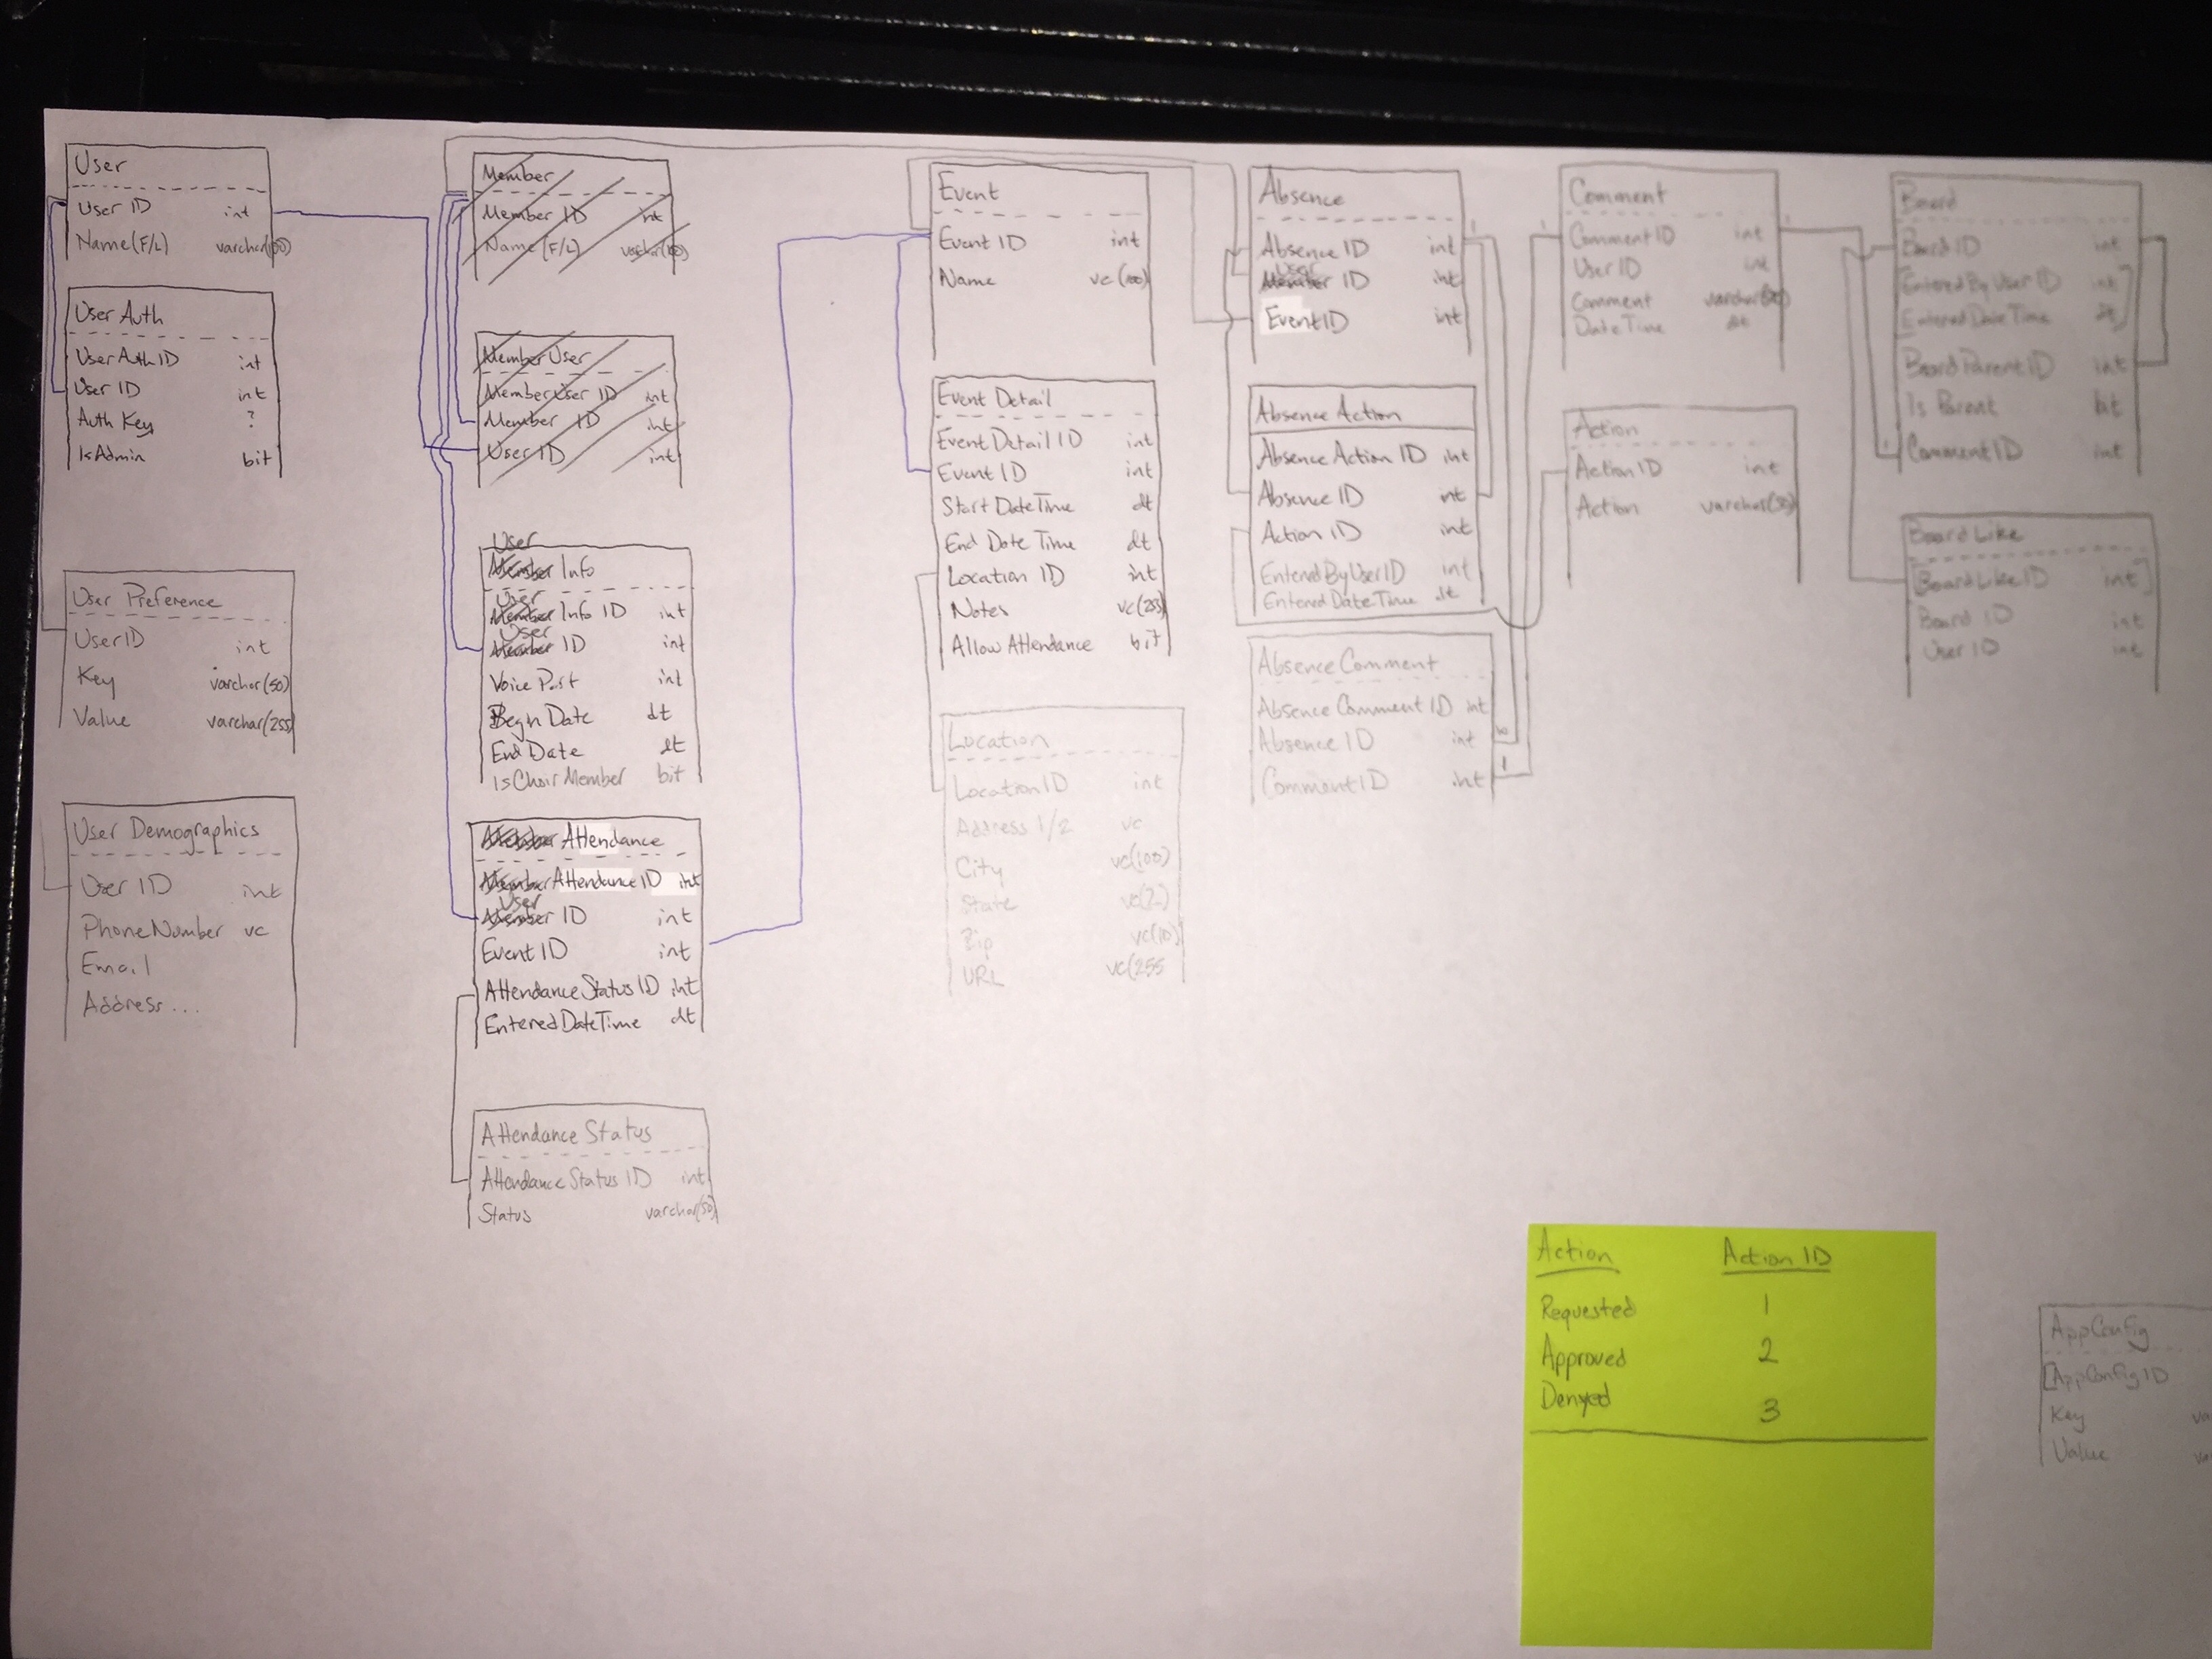 User
User ID int
Name (F/L) varchar(100)
User Auth
User Auth ID int
User ID int
Auth Key ?
IsAdmin bit
User Preference
User ID int
Key varchar(50)
Value varchar(255)
User Demographics
User ID int
PhoneNumber vc
Email
Address ...
Member
Member ID int
Name (F/L) varchar(100)
MemberUser
MemberUser ID int
Member ID int
User ID int
User
Member Info
User
Member Info ID int
User
Member ID int
Voice Part int
Begin Date dt
End Date dt
IsChoirMember bit
Member Attendance
Member Attendance ID int
User
Member ID int
Event ID int
AttendanceStatus ID int
EnteredDateTime dt
Attendance Status
Attendance Status ID int
Status varchar(50)
Event
Event ID int
Name vc (100)
Event Detail
Event Detail ID int
Event ID int
Start DateTime dt
End Date Time dt
Location ID int
Notes vc(255)
Allow Attendance bit
Location
Location ID int
Address 1/2 vc
City vc(100)
State vc(2)
Zip vc(10)
URL vc(255
Absence
Absence ID int
User
Member ID int
Event ID int
Absence Action
Absence Action ID int
Absence ID int
Action ID int
EnteredByUserID int
EnteredDateTime dt
Absence Comment
Absence Comment ID int
Absence ID int
Comment ID int
Comment
Comment ID int
User ID int
Comment
DateTime dt
Action
Action ID int
Action varchar(50)
Board
Board ID int
EnteredByUser ID int
EnteredDateTime dt
BoardParent ID int
Is Parent bit
Comment ID int
Board Like
BoardLike ID int
Board ID int
User ID int
Action Action ID
Requested 1
Approved 2
Denyed 3
AppConfig
AppConfig ID
Key va
Value va